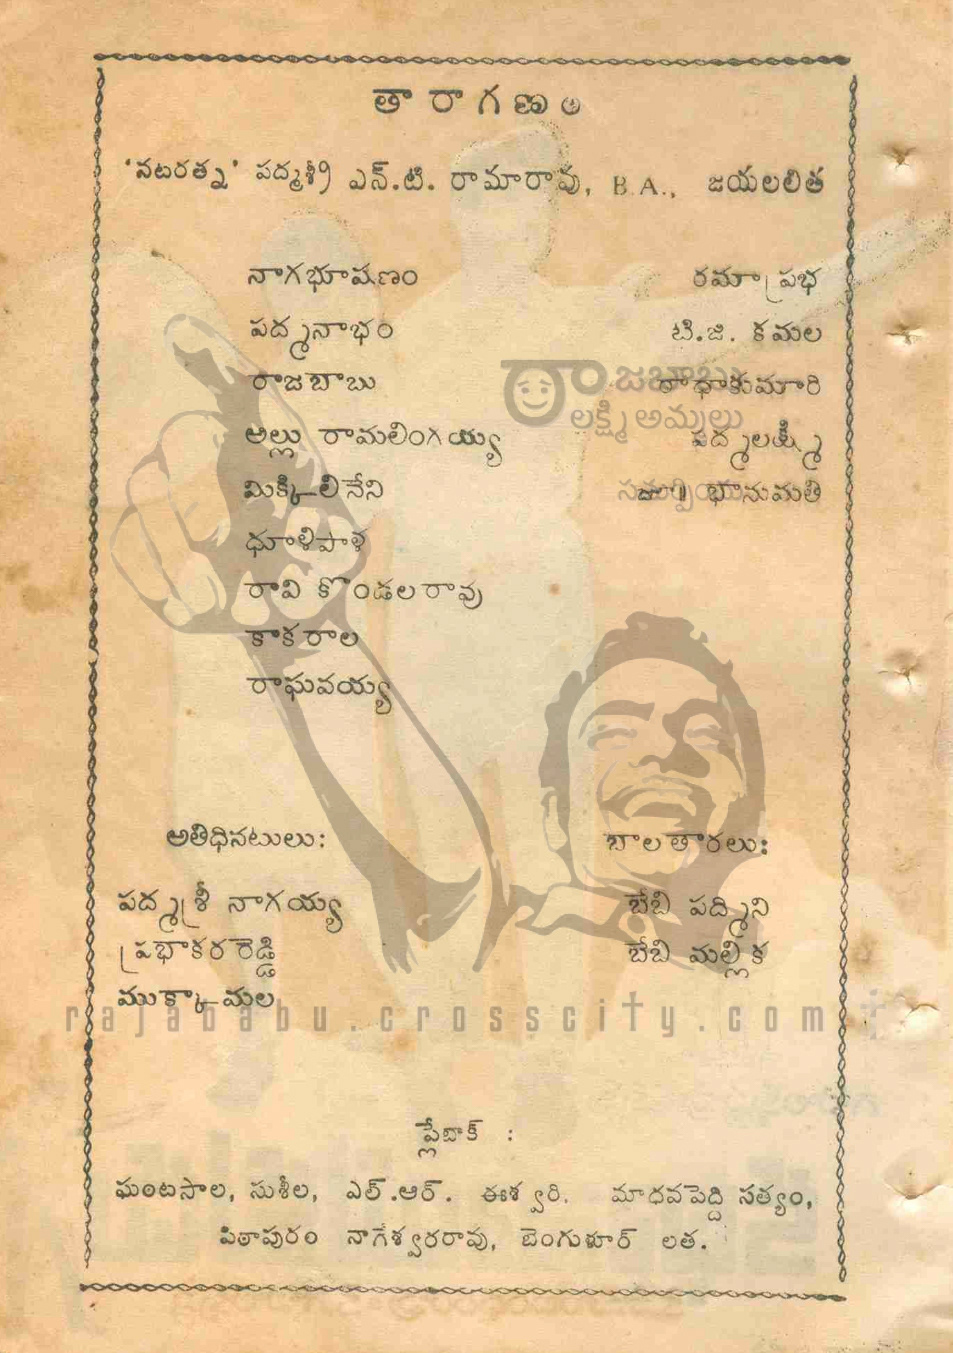 తారాగణం
'నటరత్న' పద్మశ్రీ ఎన్.టి. రామారావు, B.A., జయలలిత
నాగభూషణం రమాప్రభ
పద్మనాభం టి.జి. కమల
రాజబాబు రాధాకుమారి
అల్లు రామలింగయ్య పద్మలక్ష్మి
మిక్కిలినేని భానుమతి
ధూళిపాళ
రావి కొండలరావు
కాకరాల
రాఘవయ్య
రాజబాబు
లక్ష్మి అమ్మలు
అతిధినటులు: బాలతారలు:
పద్మశ్రీ నాగయ్య బేబి పద్మిని
ప్రభాకరరెడ్డి బేబి మల్లిక
ముక్కామల
rajababu.crosscity.com
ప్లేబాక్ :
ఘంటసాల, సుశీల, ఎల్.ఆర్. ఈశ్వరి. మాధవపెద్ది సత్యం,
పిఠాపురం నాగేశ్వరరావు, బెంగుళూర్ లత.